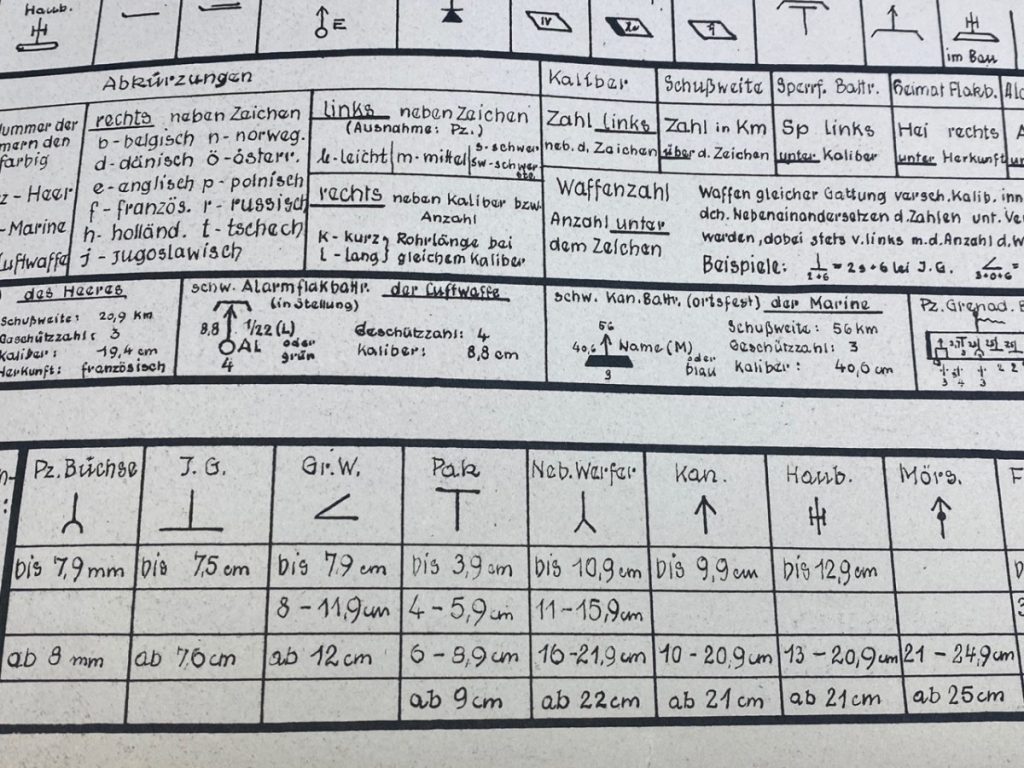 Haub.
E
IV
20
im Bau
Abkürzungen
Kaliber
Schußweite
Sperrf. Battr.
Heimat Flakb.
Nummer der
farbig
z - Heer
- Marine
Luftwaffe
rechts neben Zeichen
b - belgisch n - norweg.
d - dänisch ö - österr.
e - englisch p - polnisch
f - französ. r - russisch
h - holländ. t - tschech
j - jugoslawisch
links neben Zeichen
(Ausnahme: Pz.)
le-leicht m-mittel s-schwer
sw-schwer
ste.
rechts neben Kaliber bzw.
Anzahl
k - kurz Rohrlänge bei
l - lang gleichem Kaliber
Zahl links
neb. d. Zeichen
Zahl in Km
über d. Zeichen
Sp links
unter Kaliber
Hei rechts
unter Herkunft
Waffenzahl
Anzahl unter
dem Zeichen
Waffen gleicher Gattung versch. Kalib. inn
dch. Nebeneinandersetzen d. Zahlen unt. Ver
werden, dabei stets v. links m. d. Anzahl d. W
Beispiele: 2+6 = 2 s + 6 lei J. G. 3+0+6 =
des Heeres
Schußweite: 20,9 km
Geschützzahl: 3
Kaliber: 19,4 cm
Herkunft: französisch
schw. Alarmflakbattr. der Luftwaffe
(in Stellung)
8,8 1/22 (L)
AL oder
grün
4
Geschützzahl: 4
Kaliber: 8,8 cm
schw. Kan. Battr. (ortsfest) der Marine
56
40,6 Name (M)
oder
blau
3
Schußweite: 56 km
Geschützzahl: 3
Kaliber: 40,6 cm
Pz. Grenad.
Pz. Büchse J. G. Gr. W. Pak Neb. Werfer Kan. Haub. Mörs. F
bis 7,9 mm bis 7,5 cm bis 7,9 cm bis 3,9 cm bis 10,9 cm bis 9,9 cm bis 12,9 cm
8 - 11,9 cm 4 - 5,9 cm 11 - 15,9 cm
ab 8 mm ab 7,6 cm ab 12 cm 6 - 8,9 cm 16 - 21,9 cm 10 - 20,9 cm 13 - 20,9 cm 21 - 24,9 cm
ab 9 cm ab 22 cm ab 21 cm ab 21 cm ab 25 cm